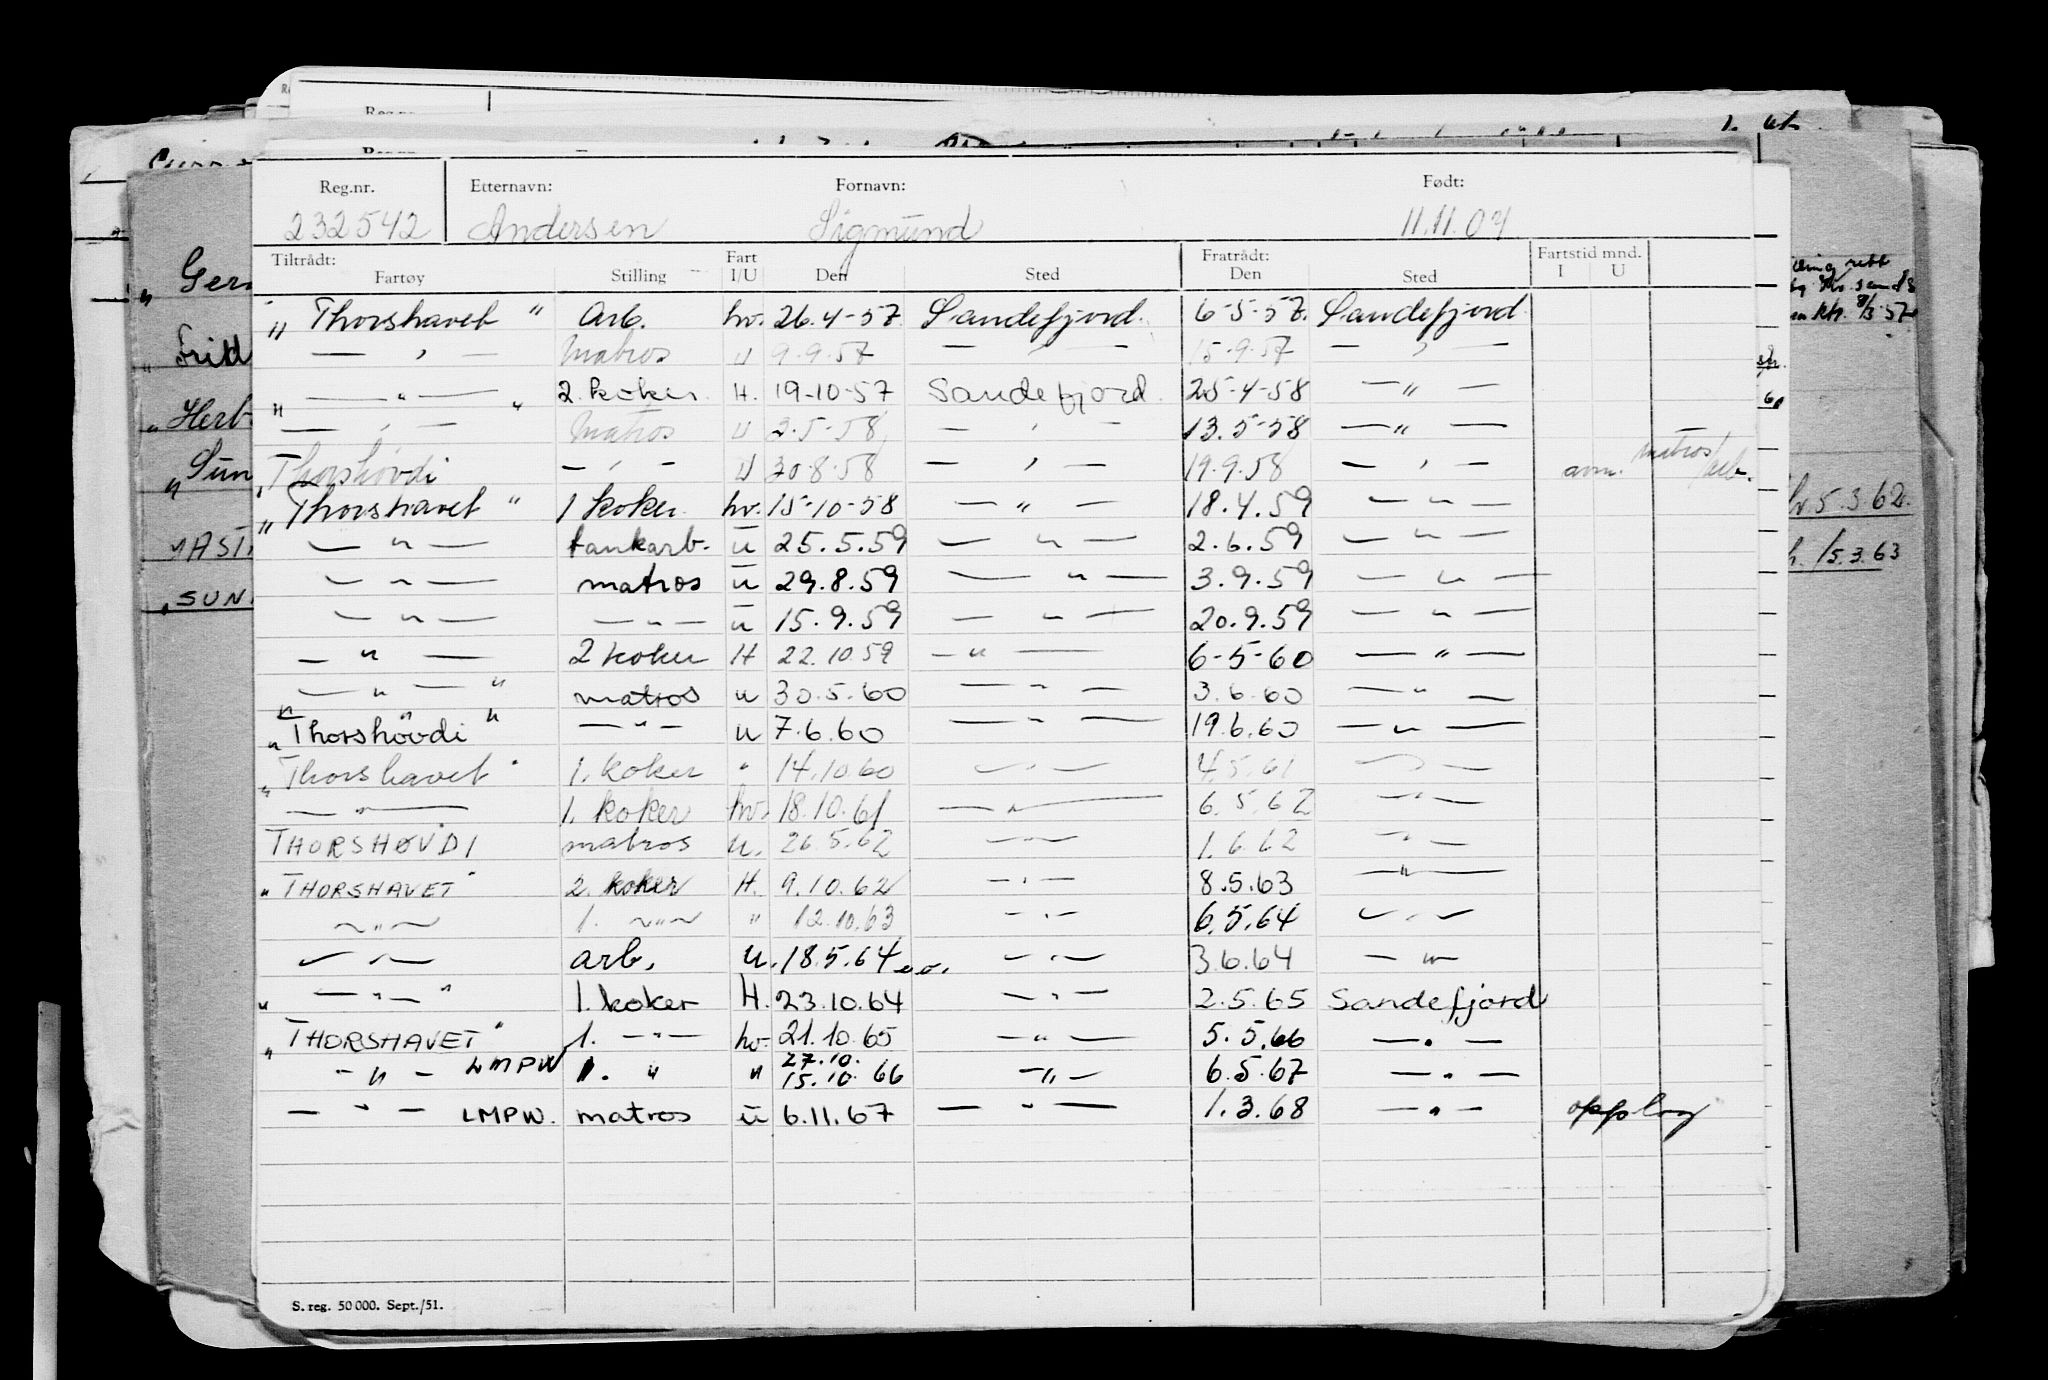 Reg.nr. Etternavn: Fornavn: Født:
232542 Andersen Sigmund 11.11.04
Tiltrådt: Fart Fratrådt: Fartstid mnd.
Fartøy Stilling I/U Den Sted Den Sted I U
"Thorshavet" Arb. hv. 26.4-57 Sandefjord 6-5-57. Sandefjord
— , — Matros U 9.9.57 — , — 15.9.57 — , —
" — " — " 2. koker. H. 19-10-57 Sandefjord. 25-4-58 — " —
— , — Matros U 2.5-58 — , — 13.5-58 — " —
"Thorshövdi — , — U 30.8.58 — , — 19.9.58 — , — avm. matros/arb.
"Thorshavet" 1 koker hv. 15-10-58 — " — 18.4.59 — " —
— " — tankarb. u 25.5.59 — " — 2.6.59 — " —
— " — matros u 29.8.59 — " — 3.9.59 — " —
— " — — " — u 15.9.59 — " — 20.9.59 — " —
— " — 2 koker H 22.10.59 — " — 6-5-60 — " —
" — " — " matros u 30.5.60 — " — 3.6.60 — " —
"Thorshövdi" — " — u 7.6.60 — " — 19.6.60 — " —
"Thorshavet" 1. koker " 14.10.60 — " — 4.5.61 — " —
— " — 1. koker hv. 18.10.61 — " — 6.5.62 — " —
THORSHØVDI matros u. 26.5.62 — " — 1.6.62 — " —
"THORSHAVET" 2. koker H. 9.10.62 — " — 8.5.63 — " —
— " — 1. — " — " 12.10.63 — " — 6.5.64 — " —
— " — arb. u. 18.5.64 — " — 3.6.64 — " —
" — " — " 1. koker H. 23.10.64 — " — 2.5.65 Sandefjord
"THORSHAVET" 1. — " — hv. 21.10.65 — " — 5.5.66 — " —
27.10.
— " — LMPW 1. " " 15.10.66 — " — 6.5.67 — " —
— " — LMPW. matros u 6.11.67 — " — 1.3.68 — " — opplag
S. reg. 50 000. Sept./51.
" Geri
" Frid
" Herb
" Sun
" AST
" SUN
hv. 5.3.62.
15.3.63